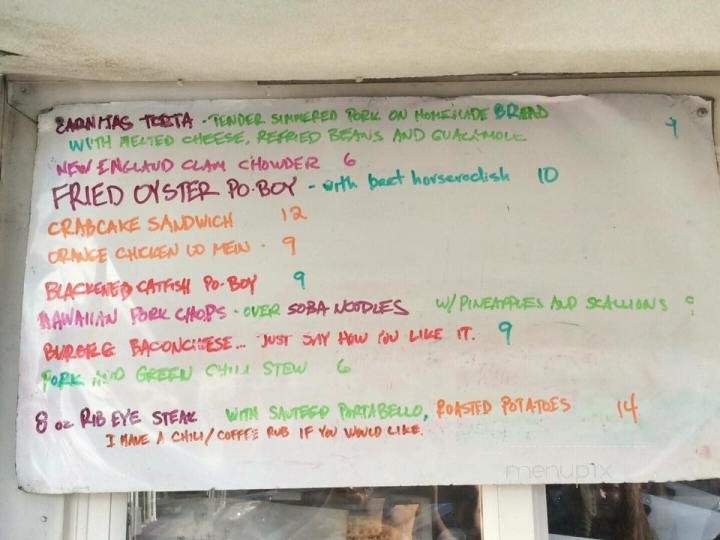 CARNITAS TORTA - TENDER SIMMERED PORK ON HOMEMADE BREAD 9
WITH MELTED CHEESE, REFRIED BEANS AND GUACAMOLE
NEW ENGLAUD CLAM CHOWDER 6
FRIED OYSTER PO-BOY - with beet horseradish 10
CRABCAKE SANDWICH 12
ORANGE CHICKEN LO MEIN - 9
BLACKENED CATFISH PO-BOY 9
HAWAIIAN PORK CHOPS - OVER SOBA NOODLES W/ PINEAPPLES AND SCALLIONS 9
BACONCHEESE... JUST SAY HOW YOU LIKE IT. 9
PORK AND GREEN CHILI STEW 6
8 oz RIB EYE STEAK WITH SAUTEED PORTABELLO, ROASTED POTATOES 14
I HAVE A CHILI/COFFEE RUB IF YOU WOULD LIKE.
menupix